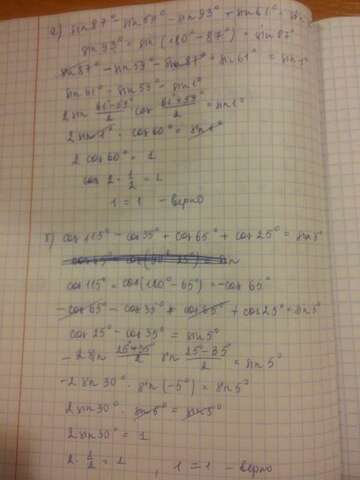 а) sin 87° - sin 59° - sin 93° + sin 61° = sin 1°
sin 93° = sin (180° - 87°) = sin 87°
sin 87° - sin 59° - sin 87° + sin 61° = sin 1°
sin 61° - sin 59° = sin 1°
2 sin (61° - 59°)/2 · cos (61° + 59°)/2 = sin 1°
2 sin 1° · cos 60° = sin 1°
2 cos 60° = 1
2 · 1/2 = 1
1 = 1 - верно
б) cos 115° - cos 35° + cos 65° + cos 25° = sin 5°
cos 115° = cos (180° - 65°) = - cos 65°
- cos 65° - cos 35° + cos 65° + cos 25° = sin 5°
cos 25° - cos 35° = sin 5°
- 2 sin (25° + 35°)/2 sin (25° - 35°)/2 = sin 5°
- 2 sin 30° · sin (-5°) = sin 5°
2 sin 30° · sin 5° = sin 5°
2 sin 30° = 1
2 · 1/2 = 1 , 1 = 1 - верно